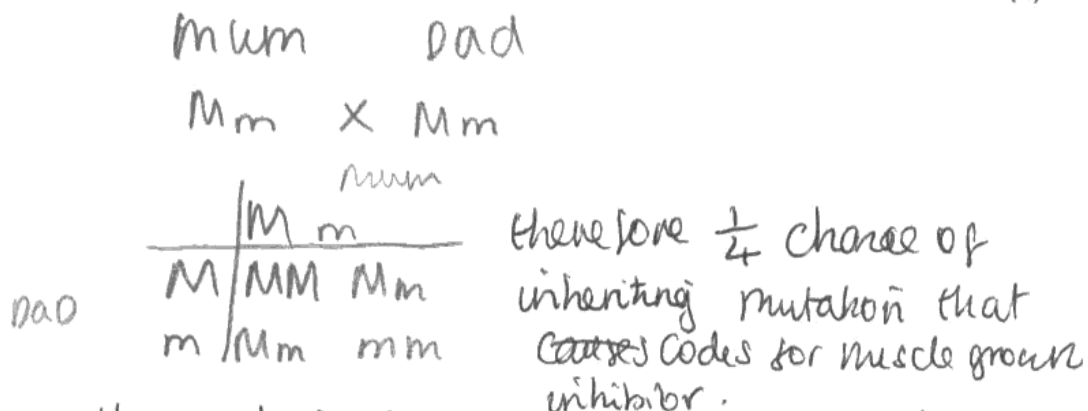 mum Dad
Mm × Mm
mum
M m
M MM Mm
DaD
m Mm mm
therefore 1/4 chance of
inheriting mutation that
causes codes for muscle growth
inhibitor.